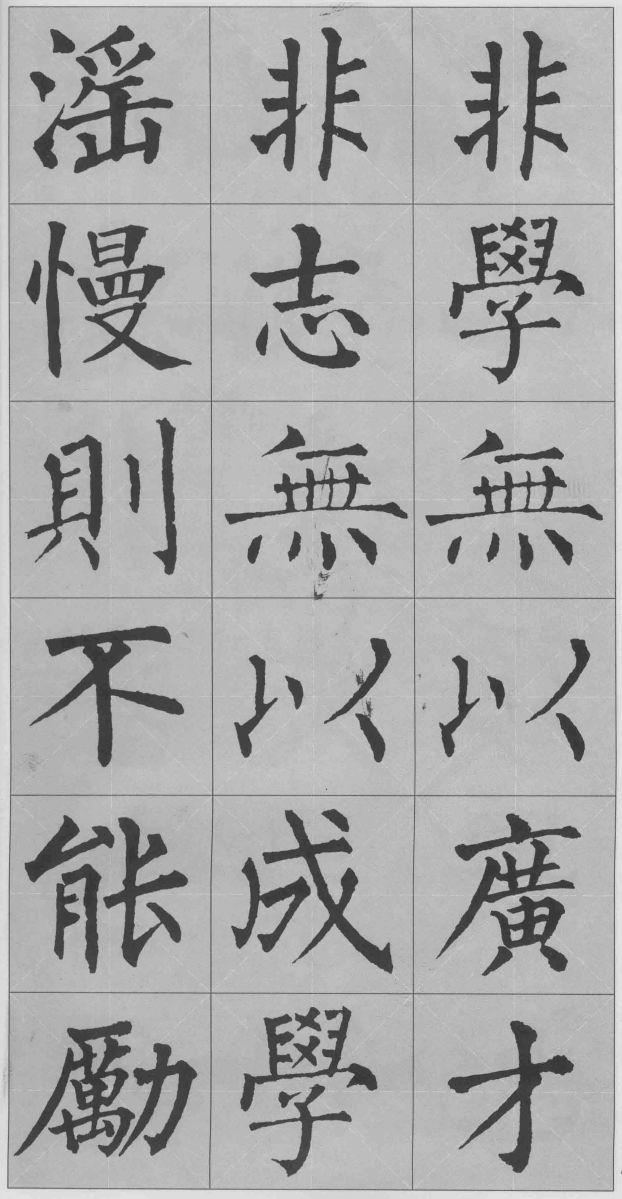 非學無以廣才
非志無以成學
滛慢則不能勵